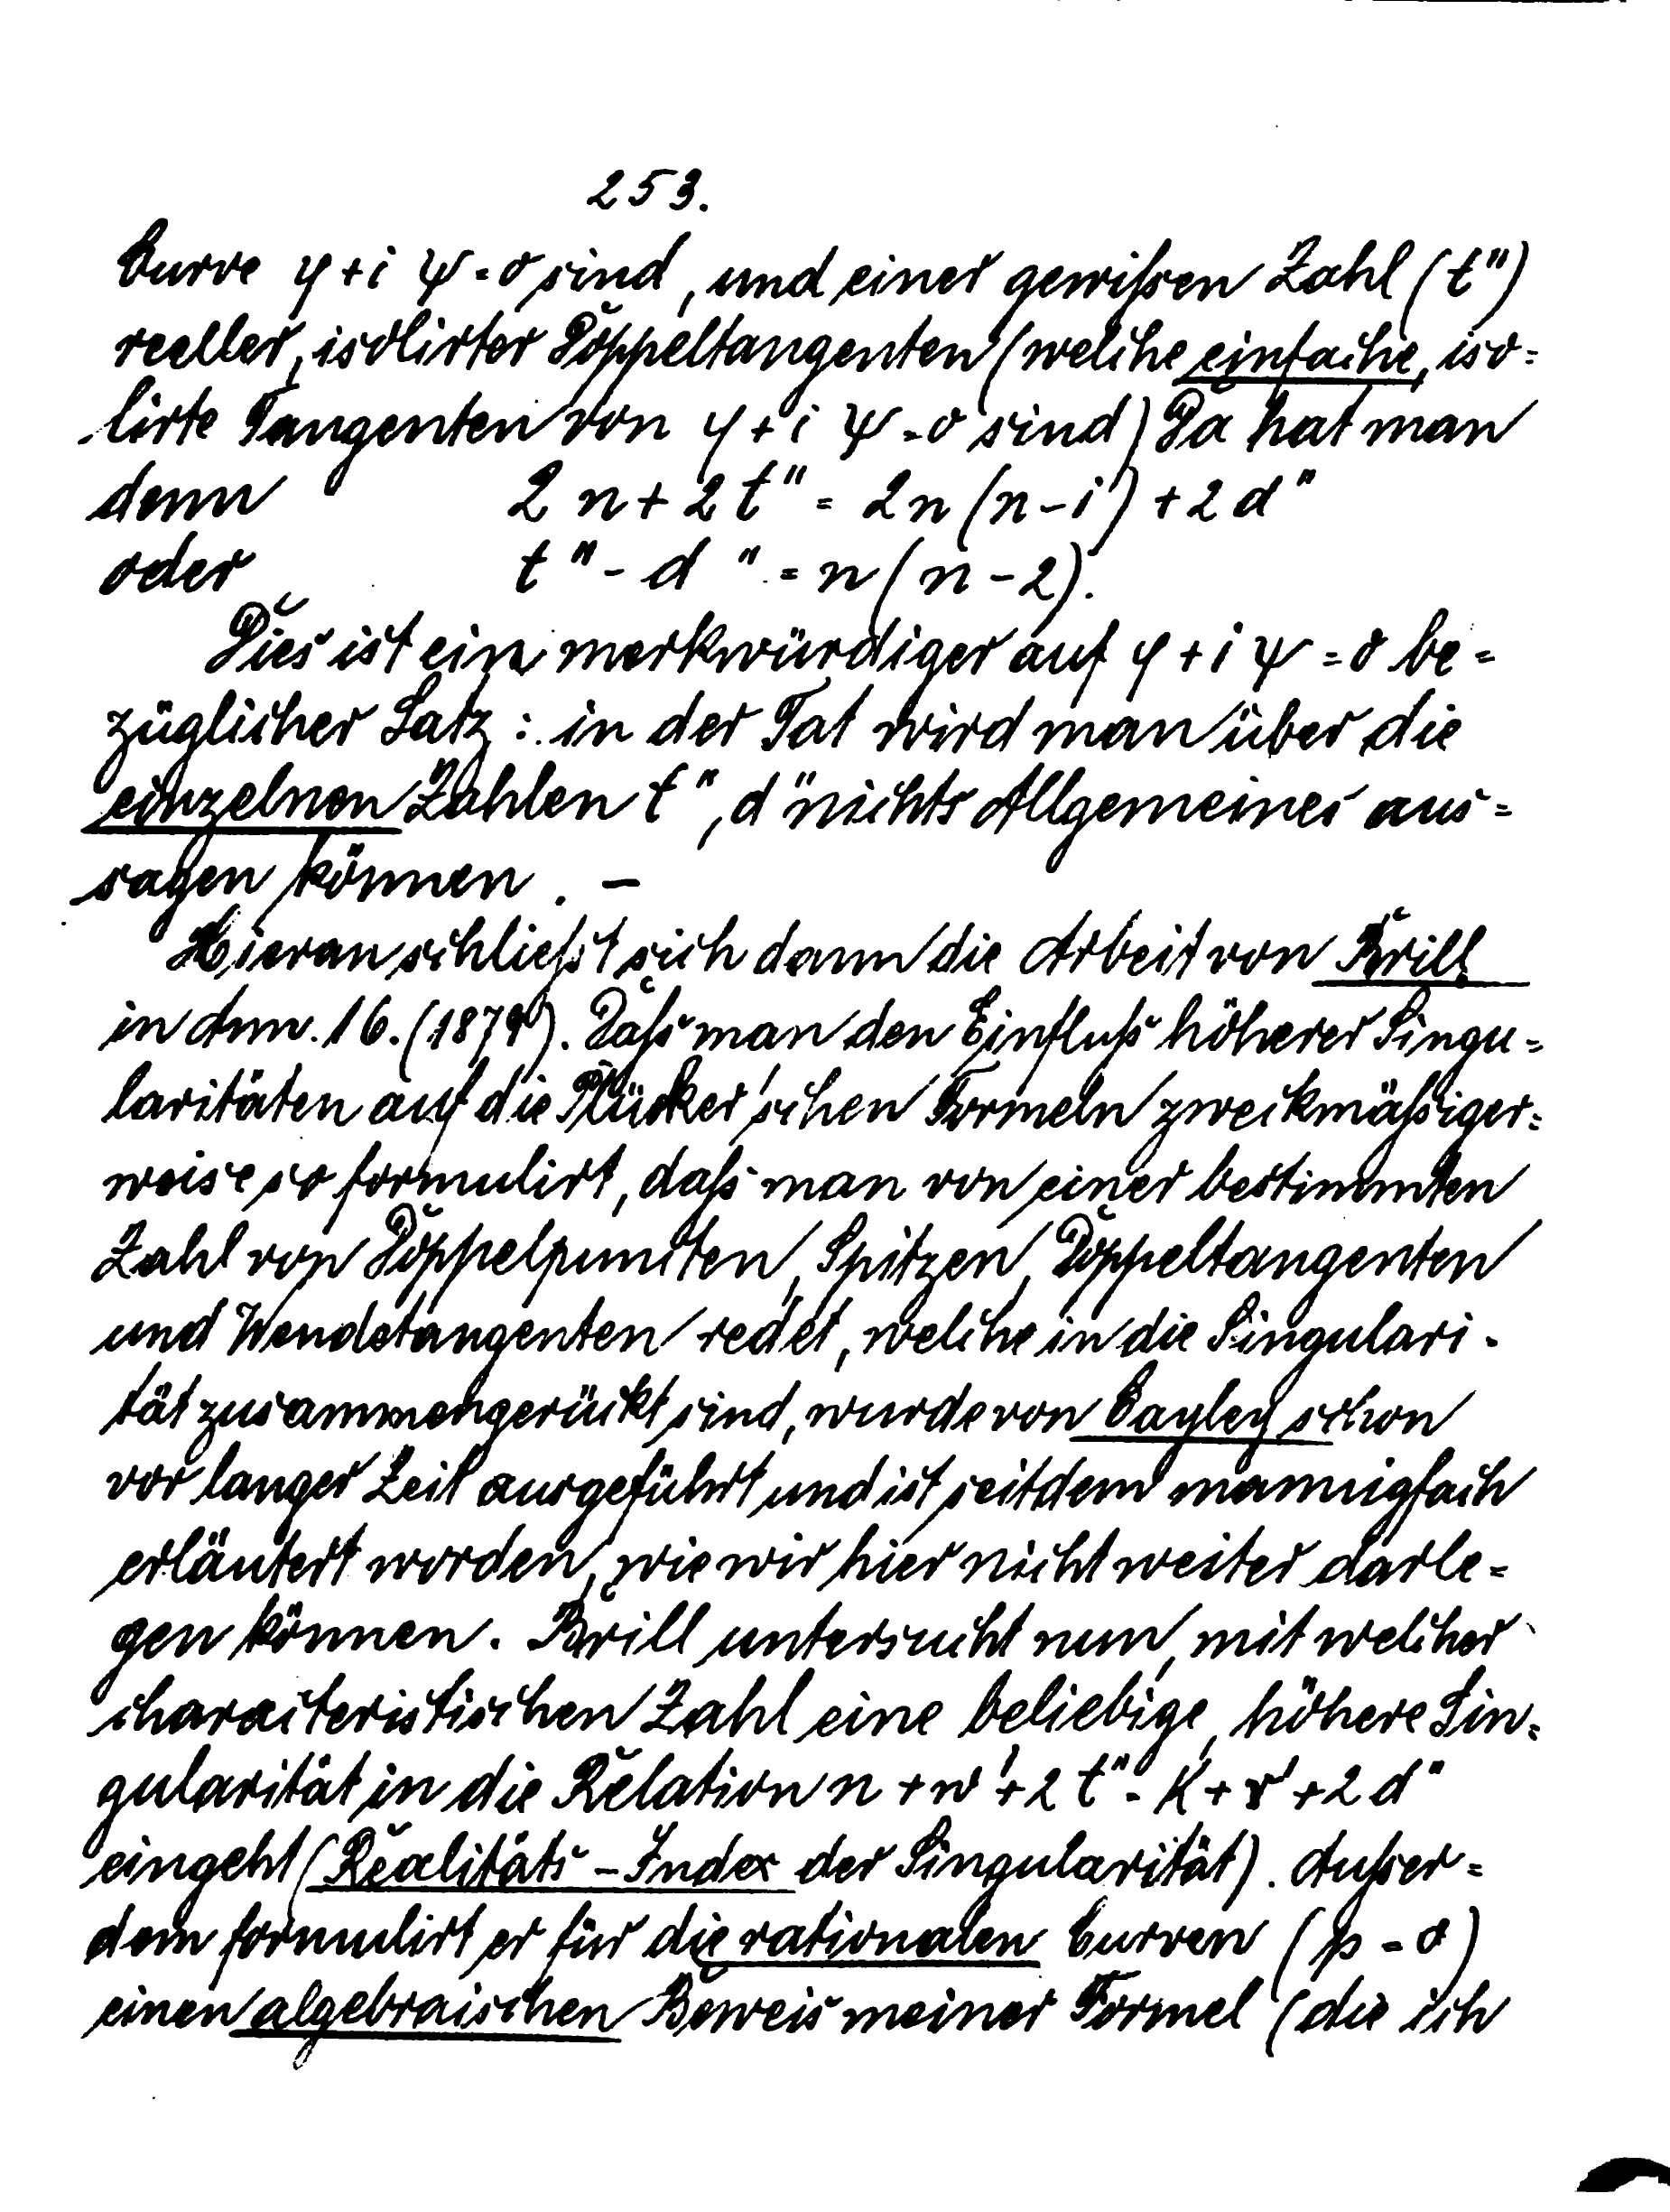 253.
Curve φ + i ψ = 0 sind, und einer gewißen Zahl (t")
reeller, isolirter Doppeltangenten (welche einfache, iso=
lirte Tangenten von φ + i ψ = 0 sind) Da hat man
denn 2 n + 2 t" = 2n (n - 1) + 2 d"
oder t" - d" = n (n - 2).
Dies ist ein merkwürdiger auf φ + i ψ = 0 be=
züglicher Satz: in der Tat wird man über die
einzelnen Zahlen t", d" nichts Allgemeines aus=
sagen können. —
Hieran schließt sich dann die Arbeit von Brill
in Ann. 16. (1879). Daß man den Einfluß höherer Singu=
laritäten auf die Plücker'schen Formeln zweckmäßiger=
weise so formulirt, daß man von einer bestimmten
Zahl von Doppelpuncten, Spitzen, Doppeltangenten
und Wendetangenten redet, welche in die Singulari-
tät zusammengerückt sind, wurde von Cayley schon
vor langer Zeit ausgeführt und ist seitdem mannigfach
erläutert worden, wie wir hier nicht weiter darle=
gen können. Brill untersucht nun, mit welcher
characteristischen Zahl eine beliebige, höhere Sin=
gularität in die Relation n + w' + 2 t" = k + r' + 2 d"
eingeht (Realitäts-Index der Singularität). Außer=
dem formulirt er für die rationalen Curven (p = 0)
einen algebraischen Beweis meiner Formel (die ich